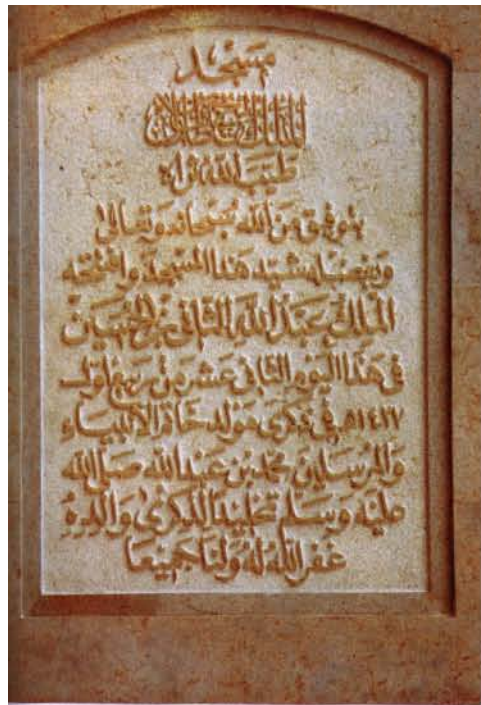 مسجد
الملك الحسين بن طلال
طيب الله ثراه
بتوفيق من الله سبحانه وتعالى
وبفضله شيد هذا المسجد وافتتحه
الملك عبد الله الثاني بن الحسين
في هذا اليوم الثاني عشر من ربيع أول
١٤٢٧هـ في ذكرى مولد خاتم الأنبياء
والمرسلين محمد بن عبد الله صلى الله
عليه وسلم تخليدا لذكرى والده
غفر الله له ولنا جميعا